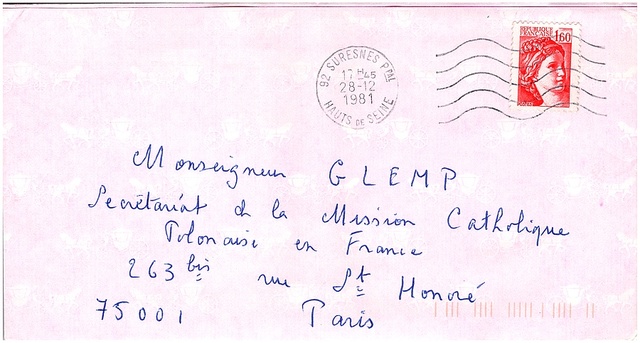 92 SURESNES Pal
17 H 45
28-12
1981
HAUTS DE SEINE
REPUBLIQUE
FRANCAISE 1,60
Monseigneur GLEMP
Secrétariat de la Mission Catholique
Polonaise en France
263 bis rue St Honoré
75001 Paris